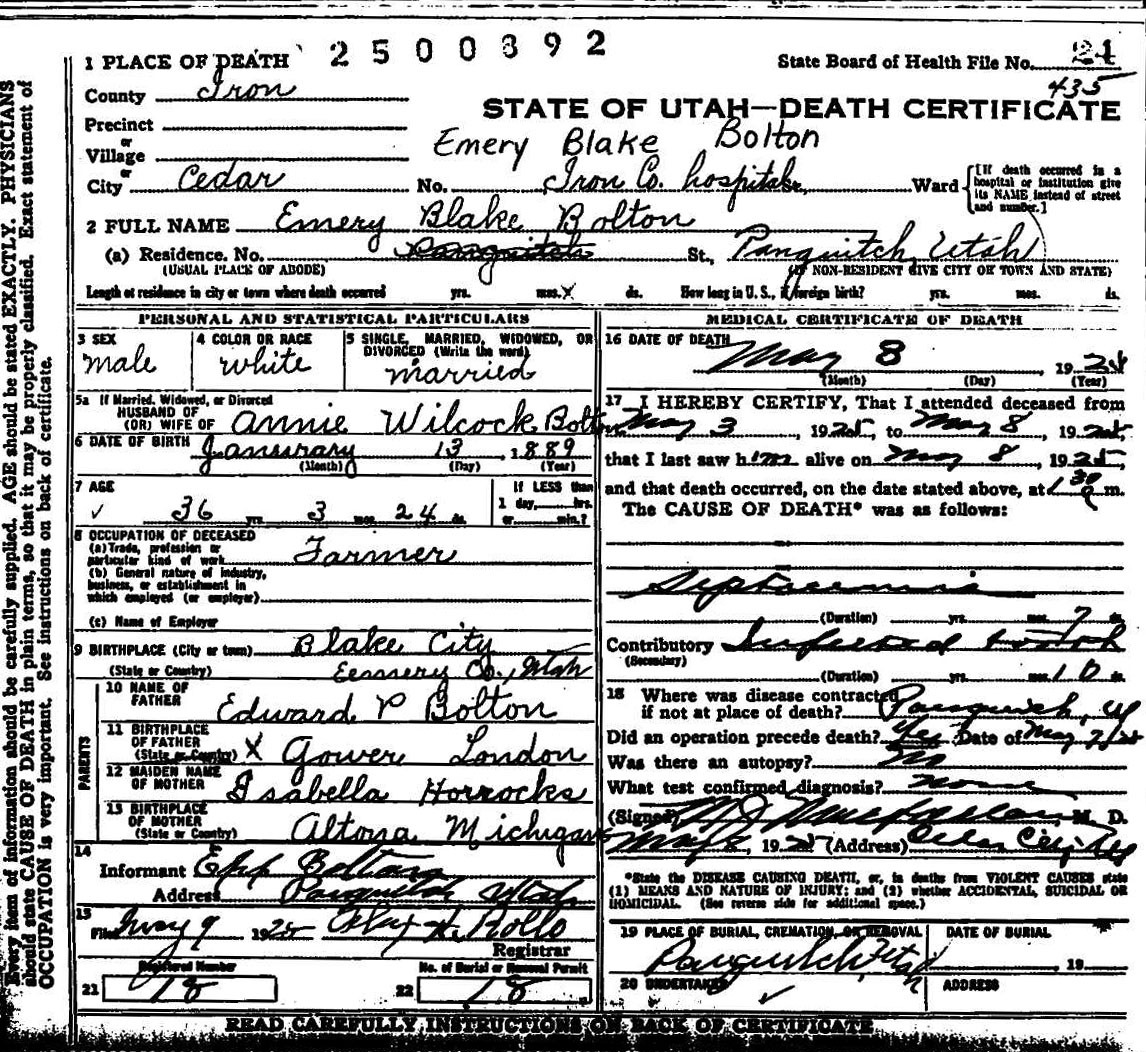 2500392
1 PLACE OF DEATH
State Board of Health File No. 21
435
County Iron
STATE OF UTAH—DEATH CERTIFICATE
Precinct
or
Village
Emery Blake Bolton
or
City Cedar No. Iron Co. hospital Ward
[If death occurred in a hospital or institution give its NAME instead of street and number.]
2 FULL NAME Emery Blake Bolton
(a) Residence. No. Panguitch St., Panguitch, Utah
(USUAL PLACE OF ABODE) (If NON-RESIDENT GIVE CITY OR TOWN AND STATE)
Length of residence in city or town where death occurred yrs. mos. x ds. How long in U. S., if foreign birth? yrs. mos. ds.
PERSONAL AND STATISTICAL PARTICULARS
3 SEX
male
4 COLOR OR RACE
white
5 SINGLE, MARRIED, WIDOWED, OR DIVORCED (Write the word)
married
5a If Married, Widowed, or Divorced
HUSBAND OF
(OR) WIFE OF Annie Wilcock Bolton
6 DATE OF BIRTH Janurary 13, 1889
(Month) (Day) (Year)
7 AGE
36 yrs. 3 mos. 24 ds.
If LESS than
1 day, hrs.
or min.?
8 OCCUPATION OF DECEASED
(a) Trade, profession or
particular kind of work Farmer
(b) General nature of industry,
business, or establishment in
which employed (or employer)
(c) Name of Employer
9 BIRTHPLACE (City or town) Blake City
(State or Country) Eemery Co., Utah
PARENTS
10 NAME OF
FATHER Edward P Bolton
11 BIRTHPLACE
OF FATHER
(State or Country) X Gower London
12 MAIDEN NAME
OF MOTHER Isabella Horrocks
13 BIRTHPLACE
OF MOTHER
(State or Country) Altona Michigan
14
Informant Epp Bolton
Address Panguitch Utah
15
Filed May 9 1925 H. Rollo
Registrar
Registered Number
21 18
No. of Burial or Removal Permit
22 18
MEDICAL CERTIFICATE OF DEATH
16 DATE OF DEATH
May 8 1925
(Month) (Day) (Year)
17 I HEREBY CERTIFY, That I attended deceased from
May 3, 1925, to May 8, 1925,
that I last saw him alive on May 8, 1925,
and that death occurred, on the date stated above, at 1 30 m.
The CAUSE OF DEATH* was as follows:
Septicaemia
(Duration) yrs. mos. 7 ds.
Contributory Infected tooth
(Secondary)
(Duration) yrs. mos. 10 ds.
18 Where was disease contracted
if not at place of death? Panguitch, Ut
Did an operation precede death? Yes Date of May 7/25
Was there an autopsy? No
What test confirmed diagnosis? None
(Signed) M J Macfarlane, M. D.
May 8, 1925 (Address) Cedar City
*State the DISEASE CAUSING DEATH, or, in deaths from VIOLENT CAUSES state
(1) MEANS AND NATURE OF INJURY; and (2) whether ACCIDENTAL, SUICIDAL OR
HOMICIDAL. (See reverse side for additional space.)
19 PLACE OF BURIAL, CREMATION, OR REMOVAL
Panguitch, Utah
DATE OF BURIAL
19
20 UNDERTAKER
ADDRESS
READ CAREFULLY INSTRUCTIONS ON BACK OF CERTIFICATE
Every item of information should be carefully supplied. AGE should be stated EXACTLY. PHYSICIANS
should state CAUSE OF DEATH in plain terms, so that it may be properly classified. Exact statement of
OCCUPATION is very important. See instructions on back of certificate.